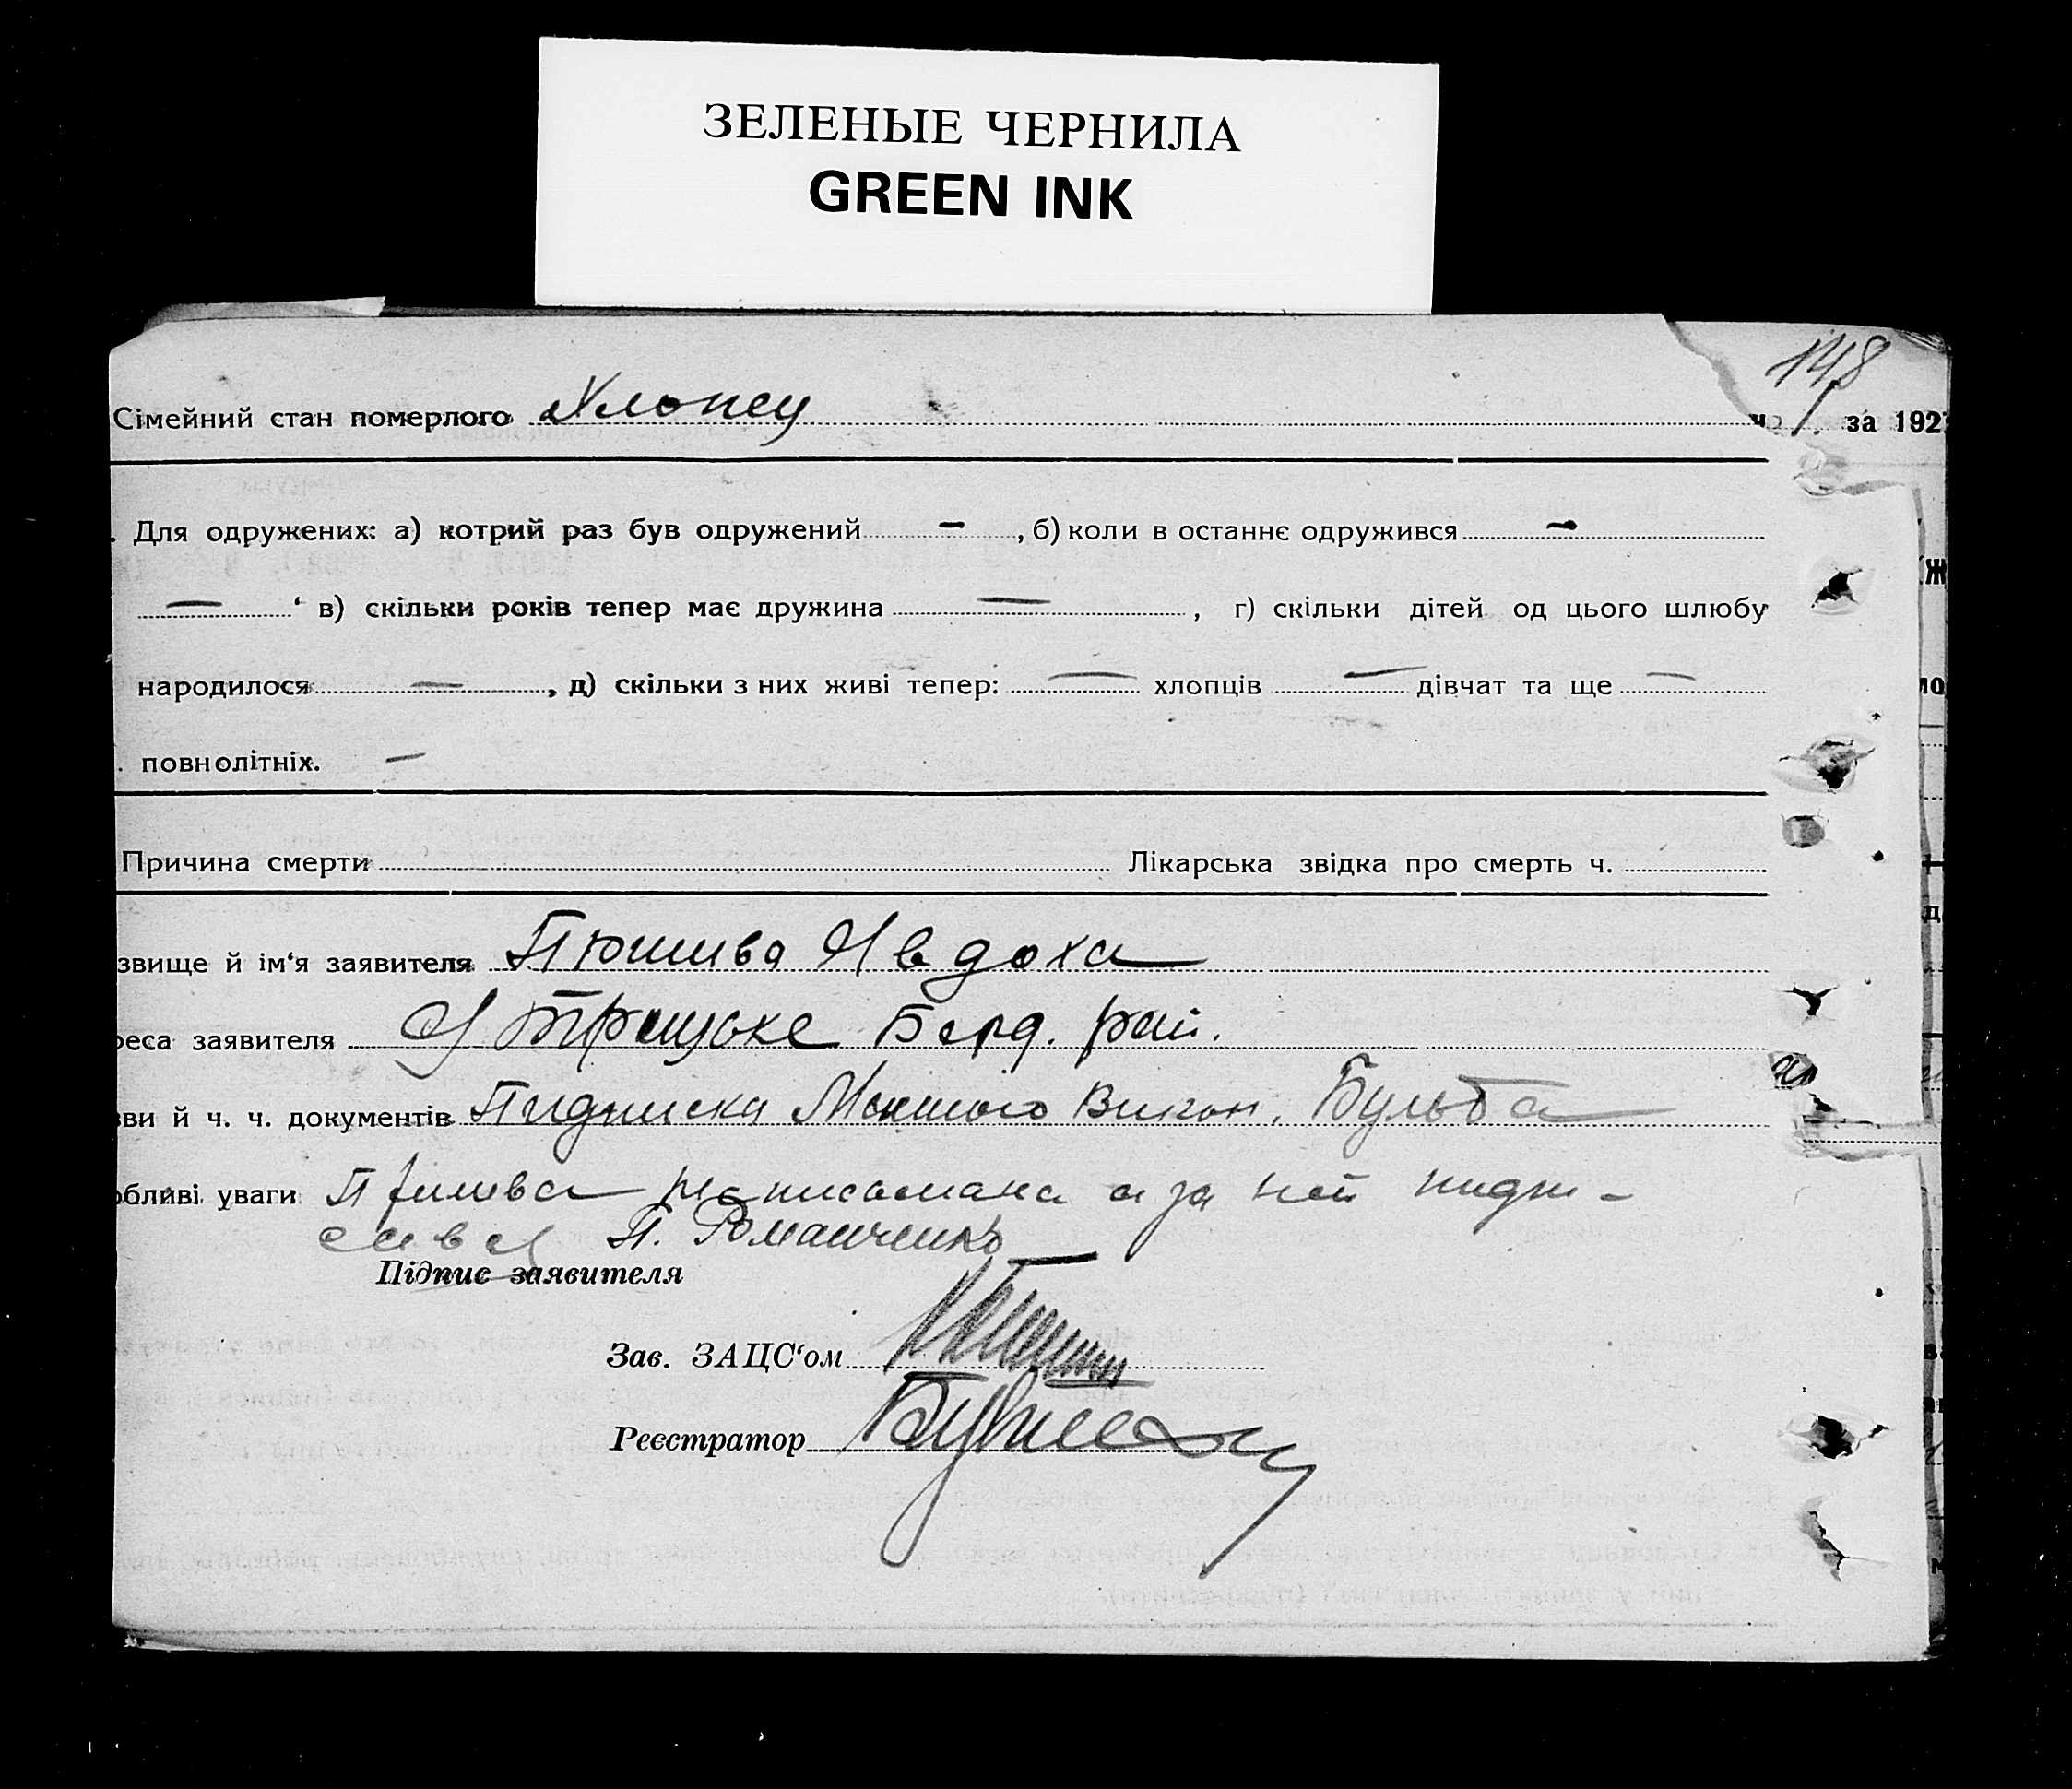 ЗЕЛЕНЫЕ ЧЕРНИЛА
GREEN INK
148
Сімейний стан померлого Хлопец
за 192
Для одружених: а) котрий раз був одружений — , б) коли в останнє одружився —
— ‘ в) скільки років тепер має дружина — , г) скільки дітей од цього шлюбу
народилося — , д) скільки з них живі тепер: — хлопців — дівчат та ще —
повнолітніх. —
Причина смерти Лікарська звідка про смерть ч.
звище й ім‘я заявителя Явдоха
реса заявителя Берд. рай.
зви й ч. ч. документів Пидписка Викон. Бульба
обливі уваги а за ней пидпи-
сався П. Романченко
Підпис заявителя
Зав. ЗАЦС‘ом
Реєстратор